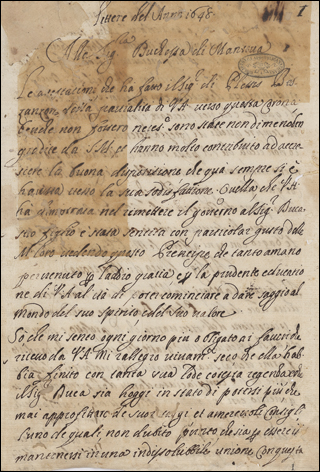 Lettere del Anno 1648.
1
Alla Sig.ra Duchessa di Mantoua
Le attestationi che ha fatto il Sig.r di Plessis Bes
ançon della parzialità di V.A. verso questa Corona
benche non fossero necess.e sono state nondimeno
gradite da S.M. et hanno molto contribuito ad accre
scere la buona dispositione che quà sempre si è
hauuta verso la sua sodisfattione. Quello che V.A.
ha dimostrato nel rimettere il gouerno al Sig.r Duca
suo figlio è stata sentita con particolar gusto dalle
MM. loro vedendo questo Prencipe da tanto amano
peruenuto p la dio gratia e p la prudente educatio
ne di V.A. al dà di poter cominciare a dare saggio al
Mondo del suo spirito e del suo valore
So che mi sento ogni giorno più obligato ai fauori che
riceuo da V.A. Mi rallegro viuam.te seco che ella hab
bia finito con tanta sua lode cotesta regenza e che
il Sig.r Duca sia hoggi in stato di potersi più che
mai approfittare de suoi saggi et amoreuoli Consigli
l'uno de quali, non dubito punto che sia p essere il
mantenersi in una indissolubile unione con questa